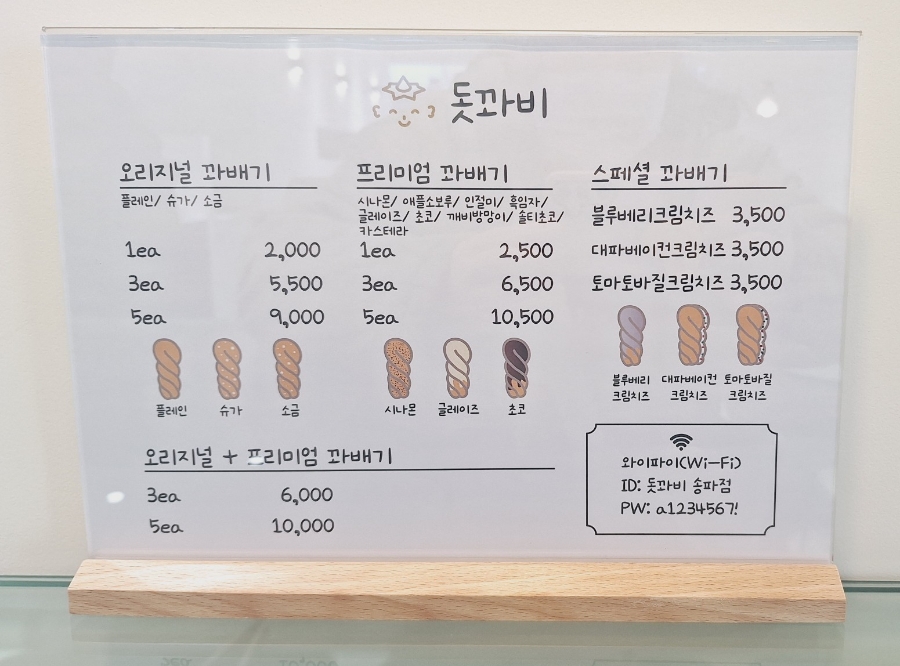 돗꽈비
오리지널 꽈배기
플레인/ 슈가/ 소금
1ea 2,000
3ea 5,500
5ea 9,000
플레인 슈가 소금
프리미엄 꽈배기
시나몬/ 애플소보루/ 인절미/ 흑임자/
글레이즈/ 초코/ 깨비방망이/ 솔티초코/
카스테라
1ea 2,500
3ea 6,500
5ea 10,500
시나몬 글레이즈 초코
스페셜 꽈배기
블루베리크림치즈 3,500
대파베이컨크림치즈 3,500
토마토바질크림치즈 3,500
블루베리 대파베이컨 토마토바질
크림치즈 크림치즈 크림치즈
오리지널 + 프리미엄 꽈배기
3ea 6,000
5ea 10,000
와이파이(Wi-Fi)
ID: 돗꽈비 송파점
PW: a1234567!